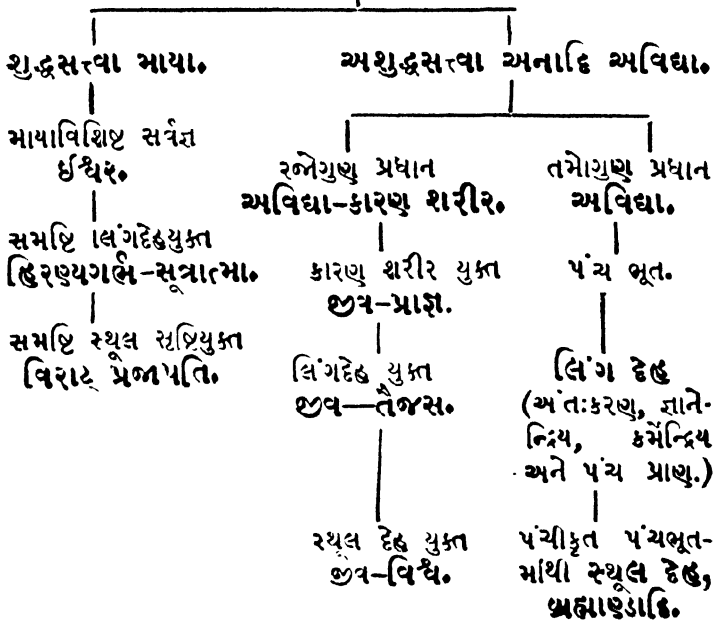 શુદ્ધસત્ત્વા માયા.
અશુદ્ધસત્ત્વા અનાદિ અવિદ્યા.
માયાવિશિષ્ટ સર્વજ્ઞ
ઈશ્વર.
સમષ્ટિ લિંગદેહયુક્ત
હિરણ્યગર્ભ-સૂત્રાત્મા.
સમષ્ટિ સ્થૂલ સૃષ્ટિયુક્ત
વિરાટ્ પ્રજાપતિ.
રજોગુણ પ્રધાન
અવિદ્યા-કારણ શરીર.
કારણ શરીર યુક્ત
જીવ-પ્રાજ્ઞ.
લિંગદેહ યુક્ત
જીવ—તૈજસ.
સ્થૂલ દેહ યુક્ત
જીવ-વિશ્વ.
તમોગુણ પ્રધાન
અવિદ્યા.
પંચ ભૂત.
લિંગ દેહ
(અંતઃકરણ, જ્ઞાને-
ન્દ્રિય, કર્મેન્દ્રિય
અને પંચ પ્રાણ.)
પંચીકૃત પંચભૂત-
માંથી સ્થૂલ દેહ,
બ્રહ્માણ્ડાદિ.